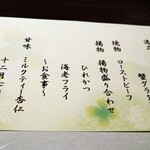 蟹グラタン
焼物 ローストビーフ
揚物 揚物盛り合わせ
ひれかつ
海老フライ
～お食事～
甘味 ミルクティー杏仁
十二月